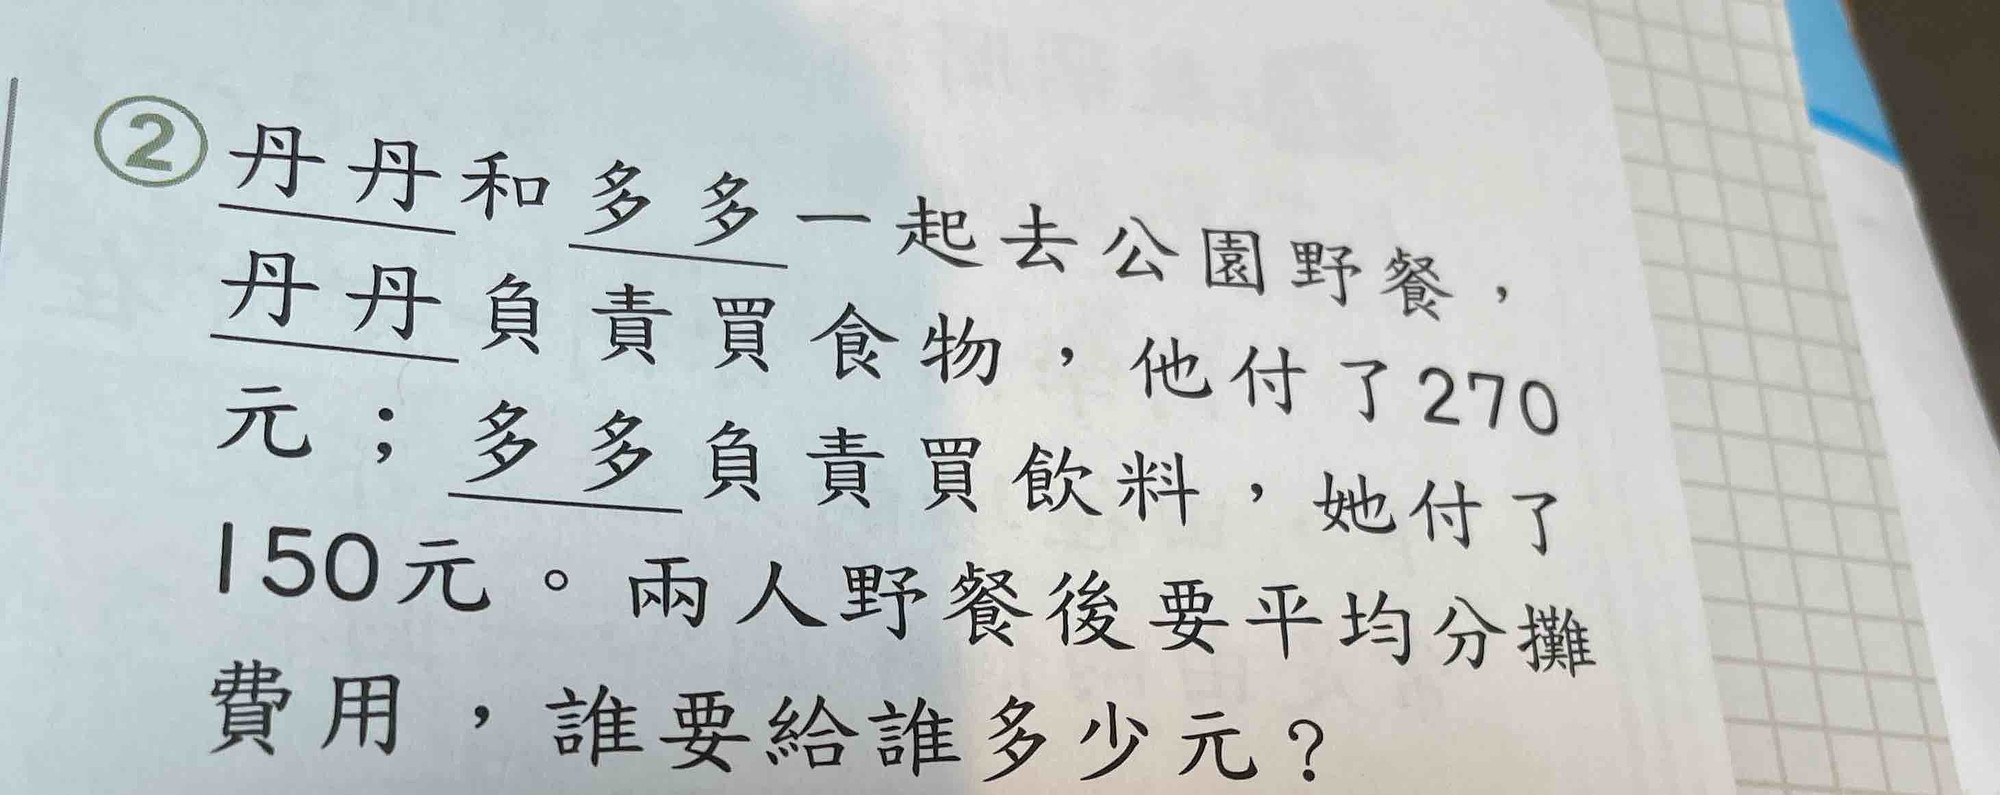 ② 丹丹和多多一起去公園野餐，
丹丹負責買食物，他付了270
元；多多負責買飲料，她付了
150元。兩人野餐後要平均分攤
費用，誰要給誰多少元？